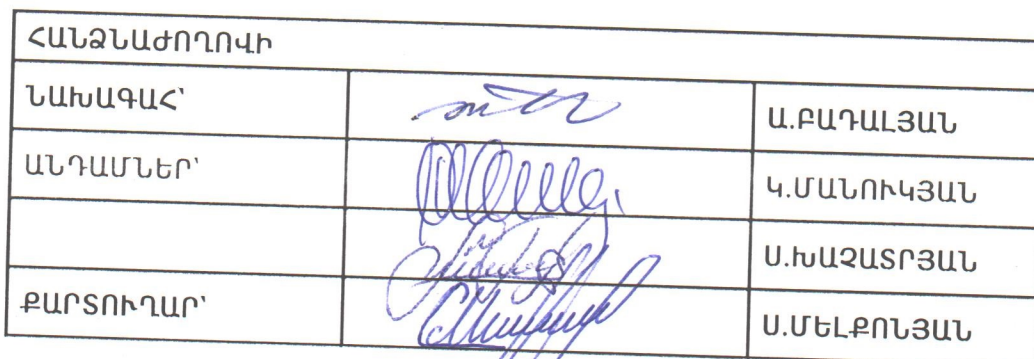 ՀԱՆՁՆԱԺՈՂՈՎԻ
ՆԱԽԱԳԱՀ՝ Ա.ԲԱԴԱԼՅԱՆ
ԱՆԴԱՄՆԵՐ՝ Կ.ՄԱՆՈՒԿՅԱՆ
Ս.ԽԱՉԱՏՐՅԱՆ
ՔԱՐՏՈՒՂԱՐ՝ Ս.ՄԵԼՔՈՆՅԱՆ